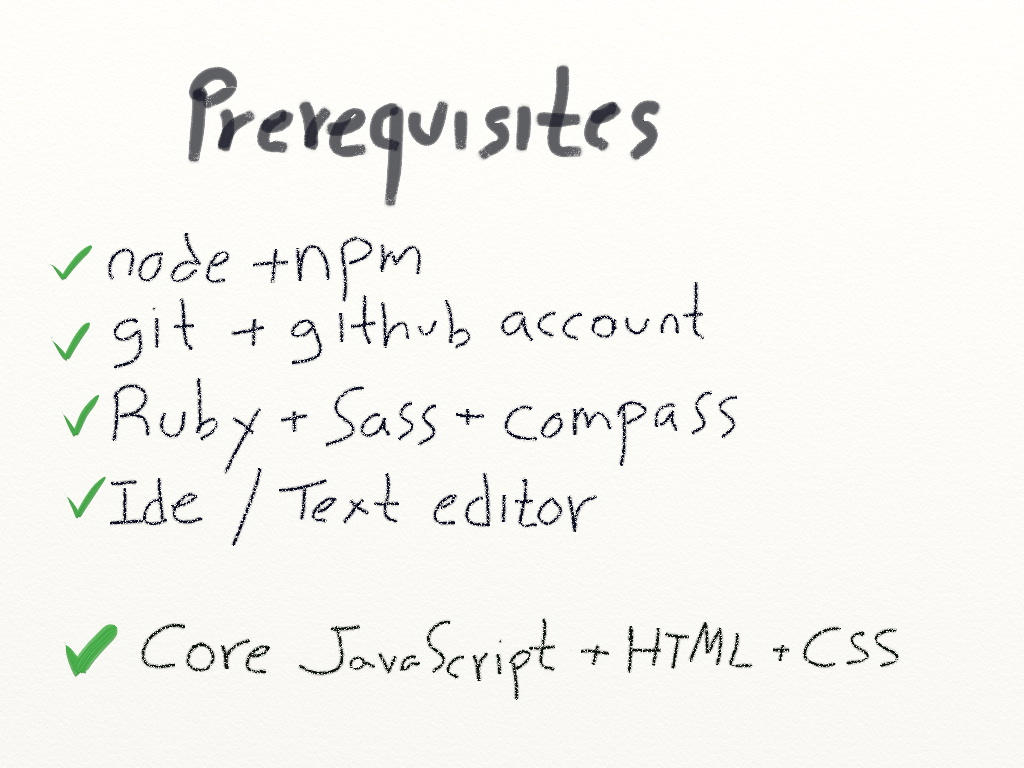 Prerequisites
node + npm
git + github account
Ruby + Sass + compass
Ide / Text editor
Core JavaScript + HTML + CSS